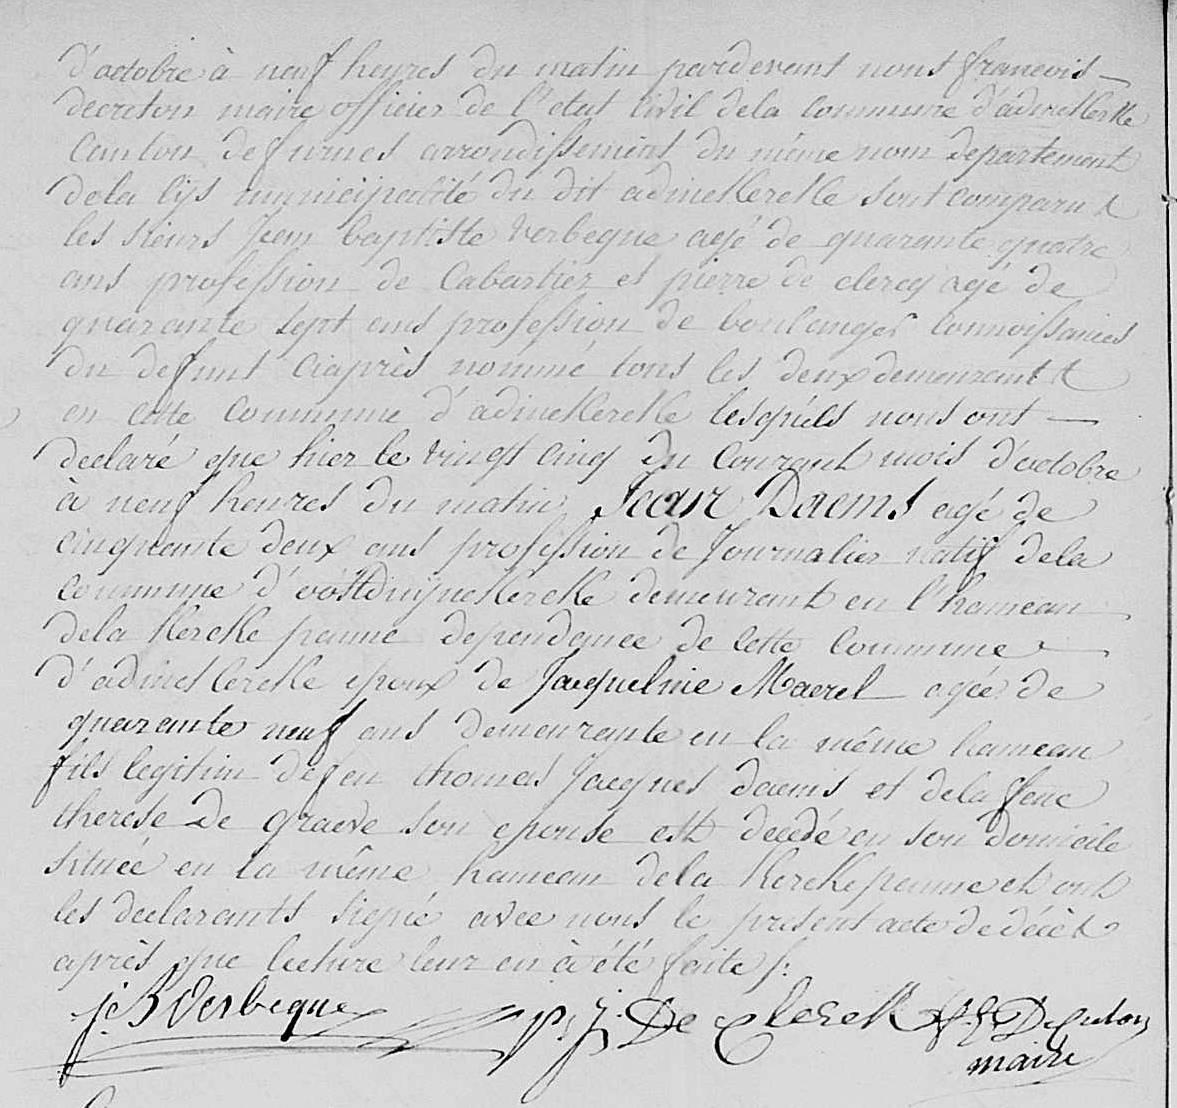 d'octobre à neuf heures du matin pardevant nous francois
decreton maire officier de l'etat Civil dela Commune d'adinckerke
Canton defurnes arrondissement du même nom departement
dela lijs municipalité du dit adinckerke sont comparu
les sieurs Jean baptiste verbeque agé de quarante quatre
ans profession de Cabartier et pierre de clercq agé de
quarante sept ans profession de boulanger Connoissances
du defunt Ciaprès nommé tous les deux demeurant
en cette Commune d'adinckerke lesquels nous ont
declaré que hier le vingt cinq du Courant mois d'octobre
à neuf heures du matin Jean Daems agé de
cinquante deux ans profession de Journalier natif dela
Commune d'oostduijnekercke demeurant en l'hameau
dela Kercke panne dependence de Cette Commune
d'adinckercke epoux de Jacqueline Maerel agée de
quarante neuf ans demeurante en la même hameau
fils legitim defeu thomas Jacques daems et dela feue
therese De Graeve son epouse est decedé en son domicile
située en la même hameau dela Kerckepanne et ont
les declarants signé avec nous le present acte de décès
après que lecture leur en à été faite /:
J: B Verbeque P: J: De Clerck f: Decreton
maire